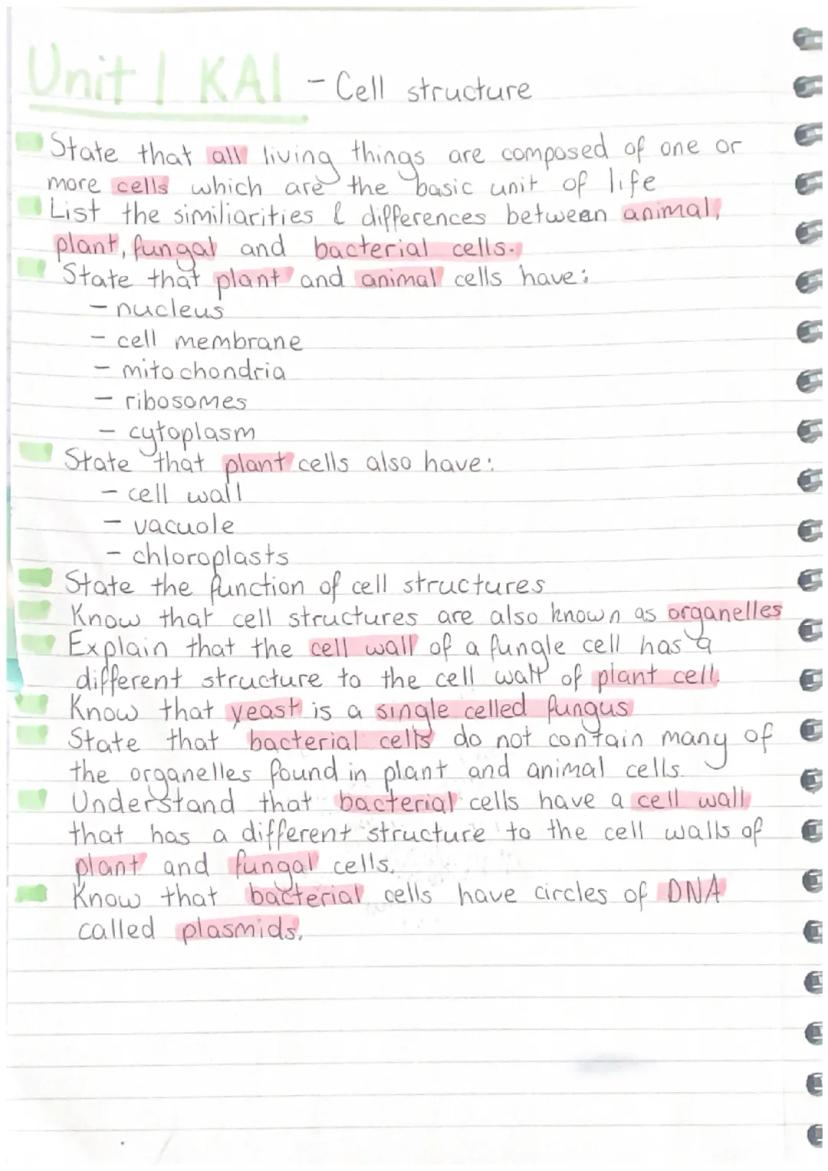 Unit 1 KA1 - Cell structure
State that all living things are composed of one or
more cells which are the basic unit of life
List the similiarities & differences between animal,
plant, fungal and bacterial cells.
State that plant and animal cells have:
- nucleus
- cell membrane
- mitochondria
- ribosomes
- cytoplasm
State that plant cells also have:
- cell wall
- vacuole
- chloroplasts
State the function of cell structures
Know that cell structures are also known as organelles
Explain that the cell wall of a fungle cell has a
different structure to the cell wall of plant cell
Know that yeast is a single celled fungus
State that bacterial cells do not contain many of
the organelles found in plant and animal cells.
Understand that bacterial cells have a cell wall
that has a different structure to the cell walls of
plant and fungal cells.
Know that bacterial cells have circles of DNA
called plasmids.